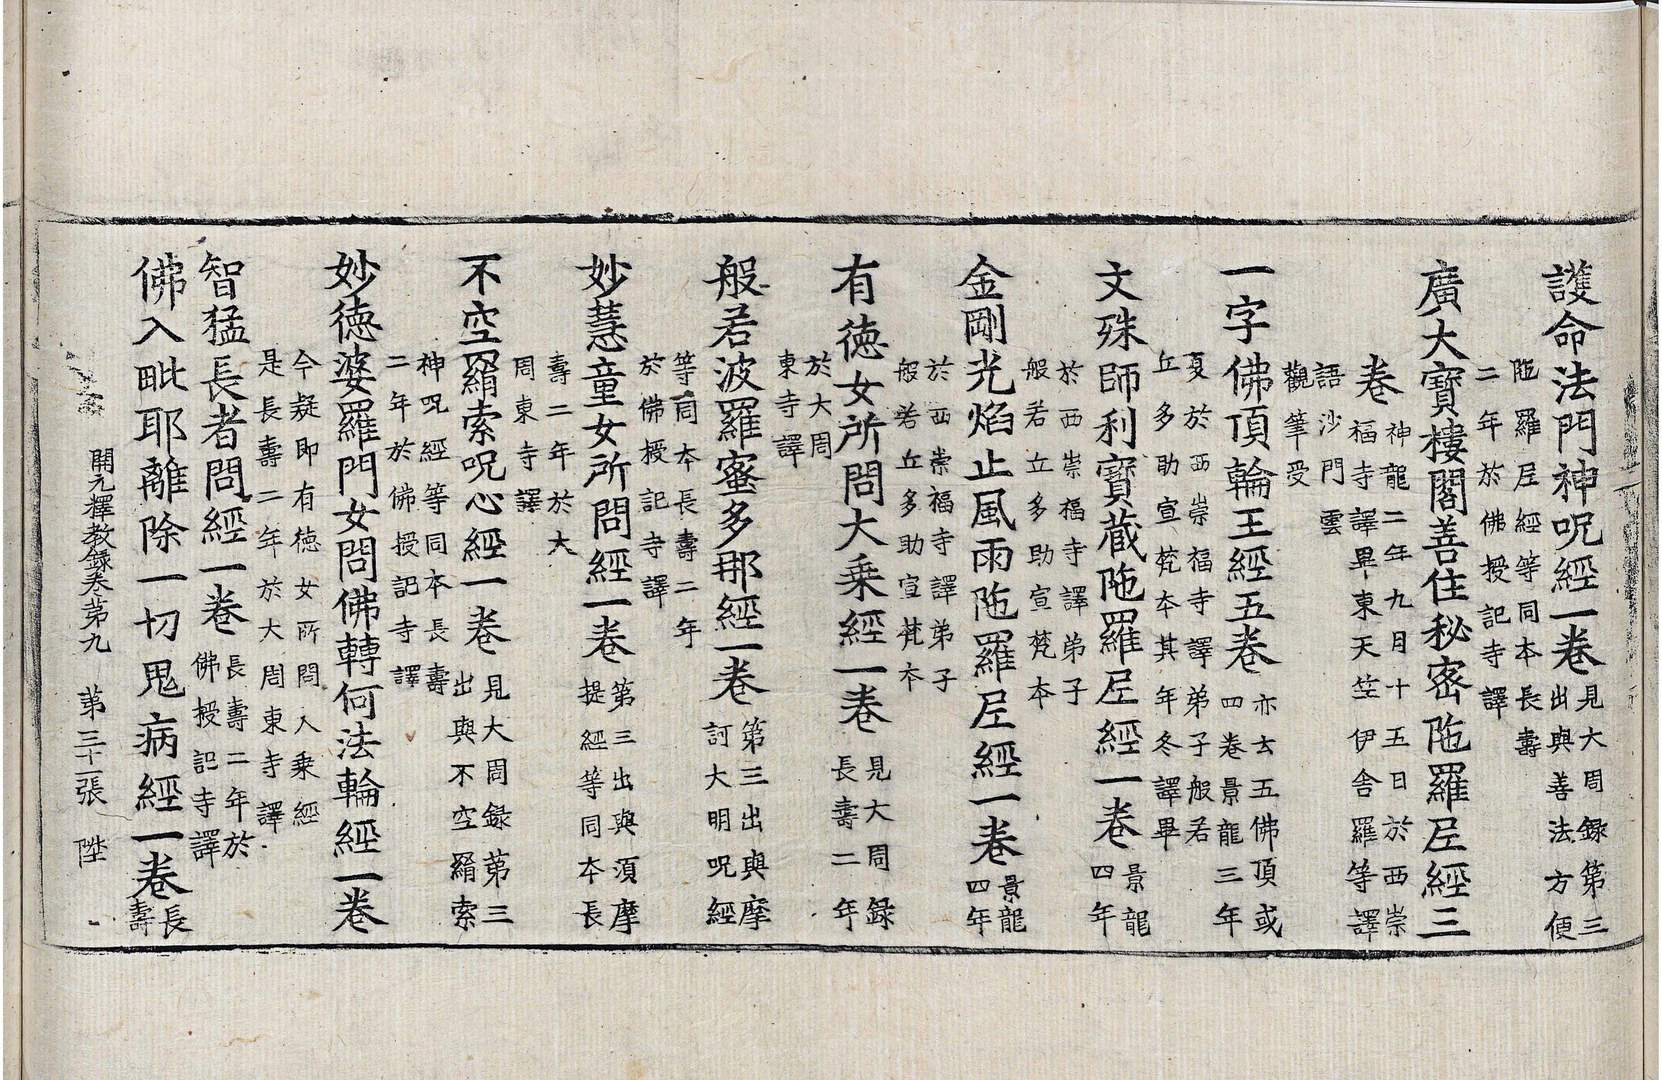 護命法門神呪經一卷見大周録第三出與善法方便
陁羅尼經等同本長壽二年於佛授記寺譯
廣大寶樓閣善住秘密陁羅尼經三
卷神龍二年九月十五日於西崇福寺譯畢東天竺伊舍羅等譯
語沙門雲觀筆受
一字佛頂輪王經五卷亦云五佛頂或四卷景龍三年
夏於西崇福寺譯弟子般若丘多助宣梵本其年冬譯畢
文殊師利寶蔵陁羅尼經一卷景龍四年
於西崇福寺譯弟子般若丘多助宣梵本
金剛光焰止風雨陁羅尼經一卷景龍四年
於西崇福寺譯弟子般若丘多助宣梵本
有徳女所問大乗經一卷見大周録長壽二年
於大周東寺譯
般若波羅蜜多那經一卷第三出與摩訶大明呪經
等同本長壽二年於佛授記寺譯
妙慧童女所問經一卷第三出與湏摩提經等同本長
壽二年於大周東寺譯
不空羂索呪心經一卷見大周録第三出與不空羂索
神呪經等同本長壽二年於佛授記寺譯
妙徳婆羅門女問佛轉何法輪經一卷
今疑即有徳女所問大乗經是長壽二年於大周東寺譯
智猛長者問經一卷長壽二年於佛授記寺譯
佛入毗耶離除一切鬼病經一卷長壽
開元釋教録卷第九 第三十一張 陞